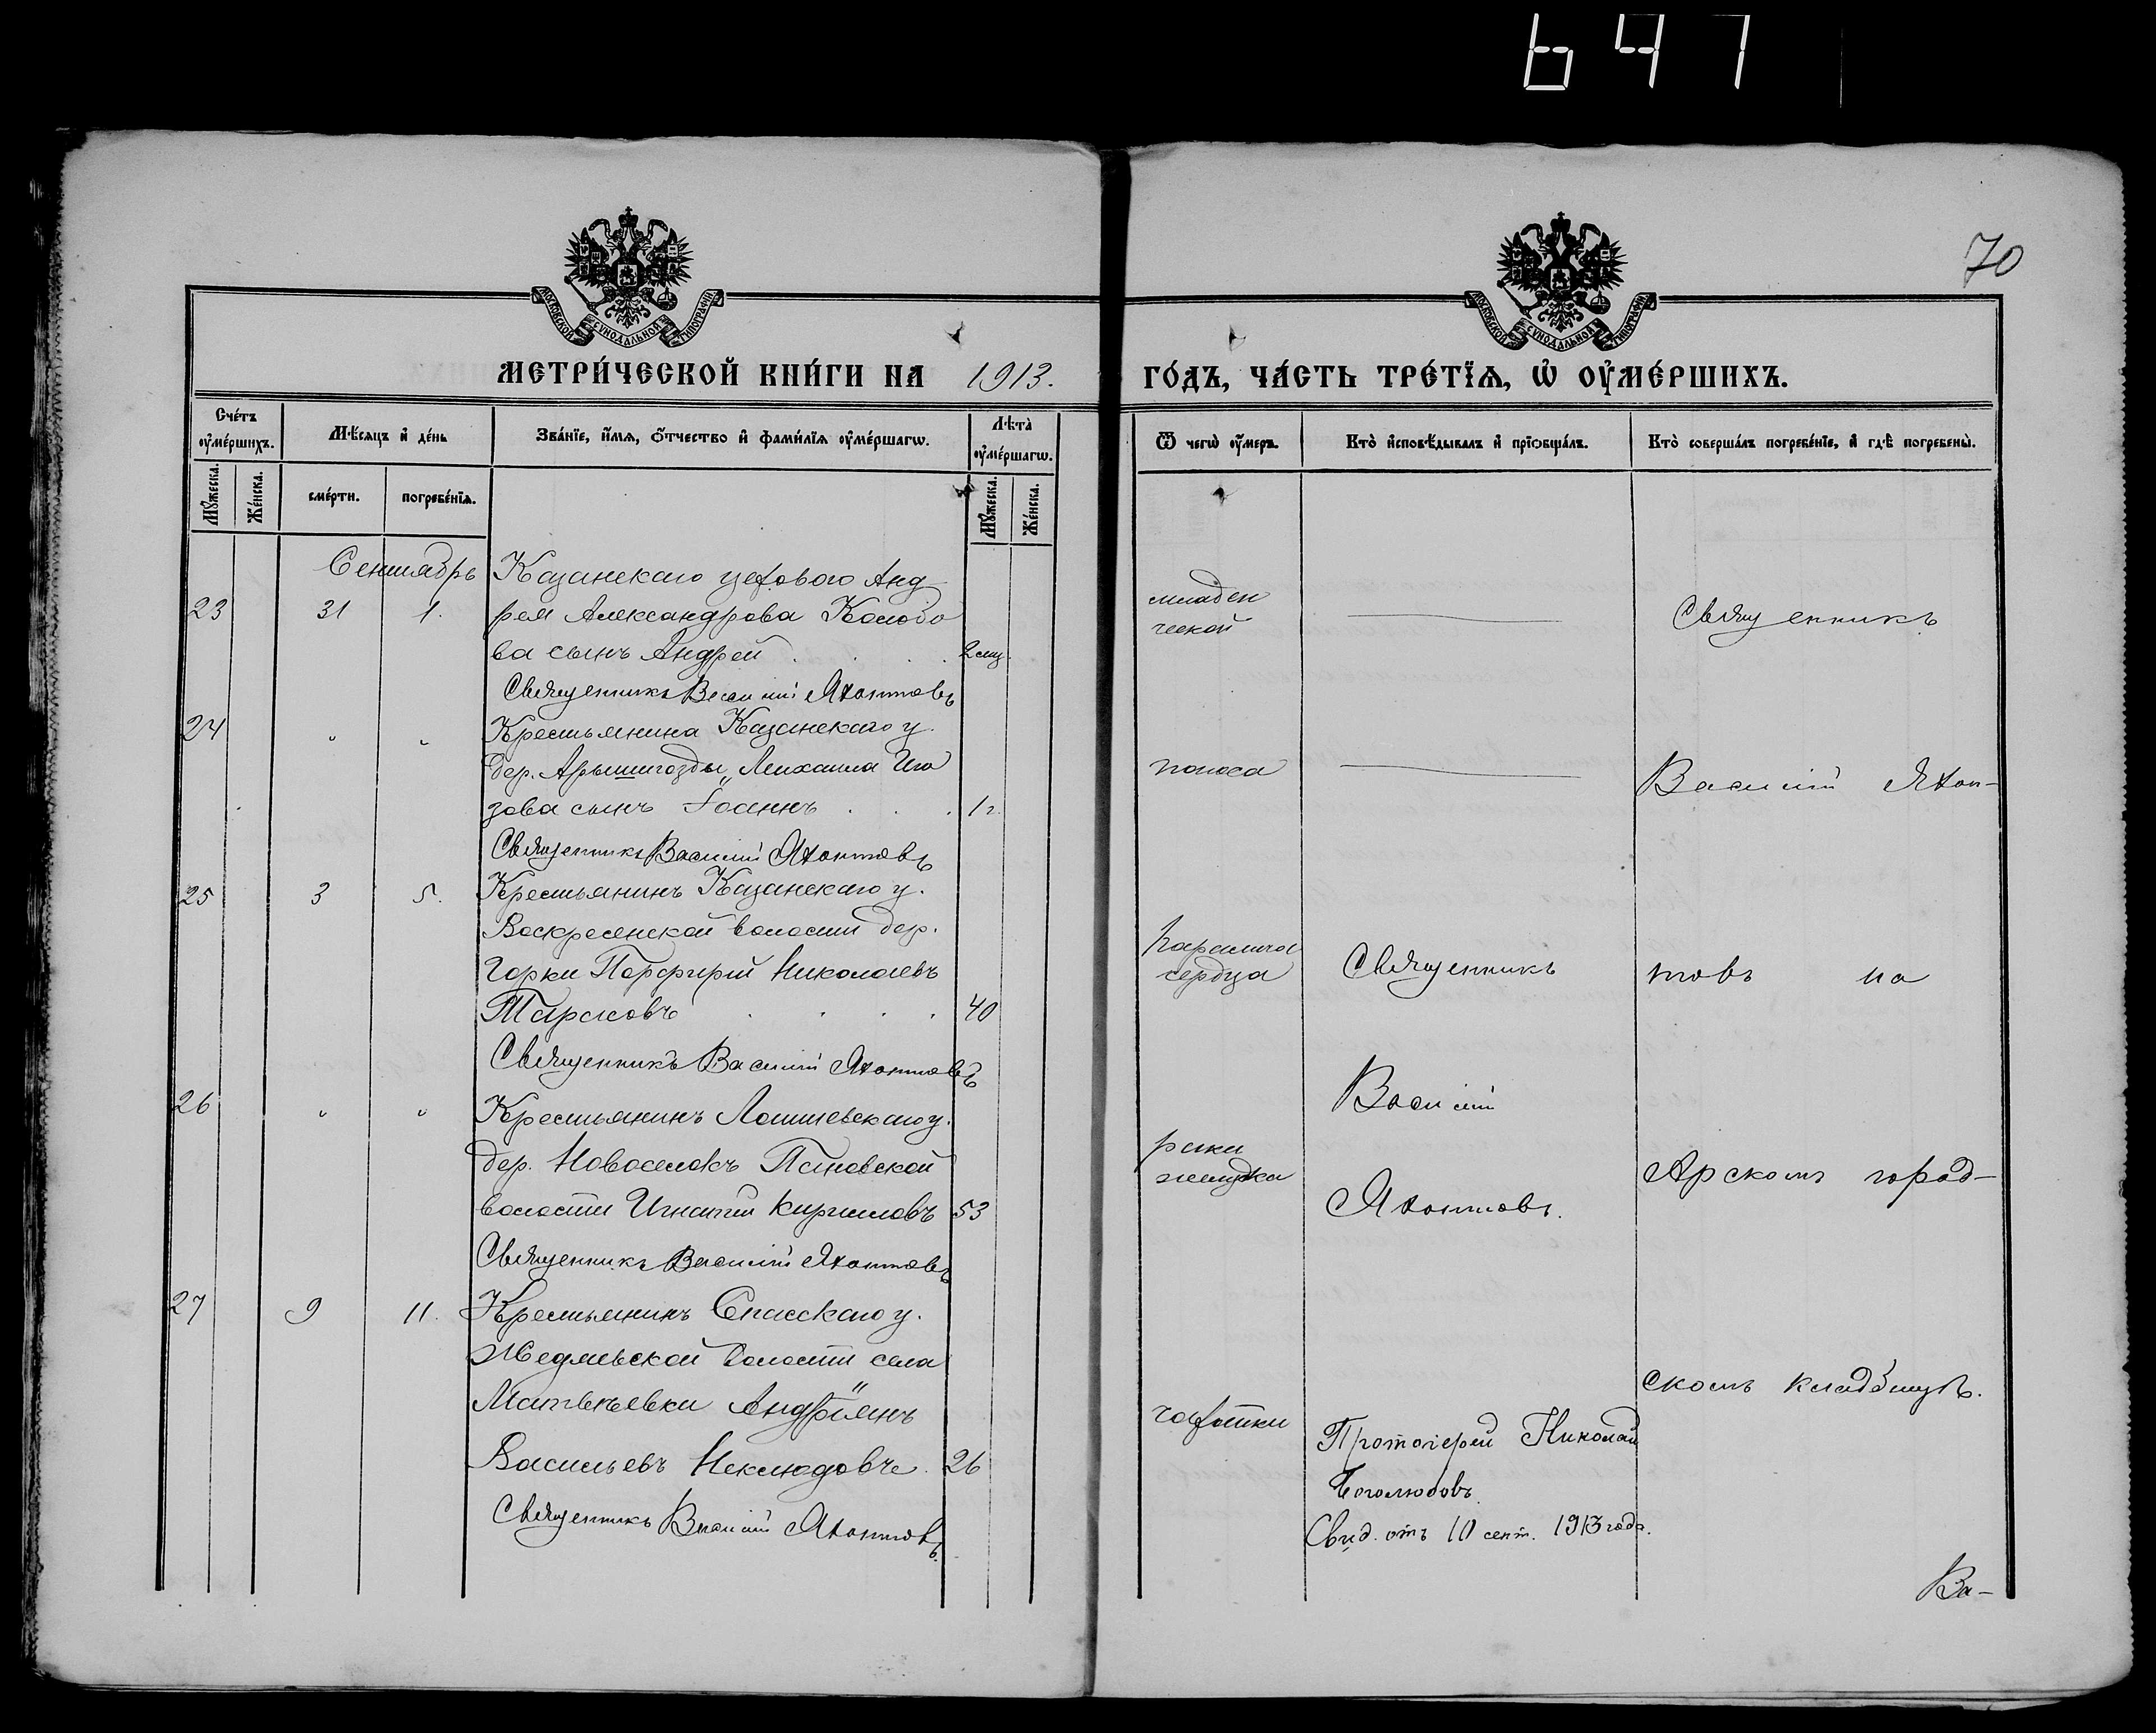 647
70
МОСКОВСКОЙ СѴНОДАЛЬНОЙ ТИПОГРАФІИ
МОСКОВСКОЙ СѴНОДАЛЬНОЙ ТИПОГРАФІИ
МЕТРИ́ЧЕСКОЙ КНИ́ГИ НА 1913. ГО́ДЪ, ЧА́СТЬ ТРЕ́ТЇѦ, Ѡ҆ ОУ҆МЕ́РШИХЪ.
Сче́тъ оу҆ме́ршихъ.
Мꙋ́жеска.
Же́нска.
Мѣ́сяцъ и҆ де́нь
сме́рти.
погребе́нїѧ.
Зва́нїе, и҆́мѧ, ѻ҆́тчество и҆ фами́лїѧ оу҆ме́ршагѡ.
Лѣ́та оу҆ме́ршагѡ.
Мꙋ́жеска.
Же́нска.
Ѿ чегѡ̀ оу҆́меръ.
Кто̀ и҆сповѣ́дывалъ и҆ прїѡбща́лъ.
Кто̀ соверша́лъ погребе́нїе, и҆ гдѣ̀ погребены̀.
Сентябрь
23 31 1.
Казанскаго цехового Анд
рея Александрова Колобо
ва сынъ Андрей 2 мц.
Священникъ Василій Яхонтовъ
младен
ческой
Священникъ
24 " "
Крестьянина Казанскаго у.
дер. Михаила
зова сынъ Іоаннъ 1 г.
Священникъ Василій Яхонтовъ
поноса
Василій Яхон-
25 3 5.
Крестьянинъ Казанскаго у.
Воскресенской волости дер.
Горки Порфирій Николаевъ
Тарасовъ 40
Священникъ Василій Яхонтовъ
паралича
сердца
Священникъ
товъ на
26 " "
Крестьянинъ Лаишевскаго у.
дер. Новоселокъ Пановской
волости Игнатій Кирилловъ 53
Священникъ Василій Яхонтовъ
рака
желудка
Василій
Яхонтовъ.
Арскомъ город-
27 9 11.
Крестьянинъ Спасскаго у.
Жедяевской волости села
Матвѣевки Андріянъ
Васильевъ Неклюдовъ 26
Священникъ Василій Яхонтовъ
чахотки
Протоіерей Николай
Боголюбовъ.
Свид. отъ 10 сент. 1913 года.
скомъ кладбищѣ.
Ва-